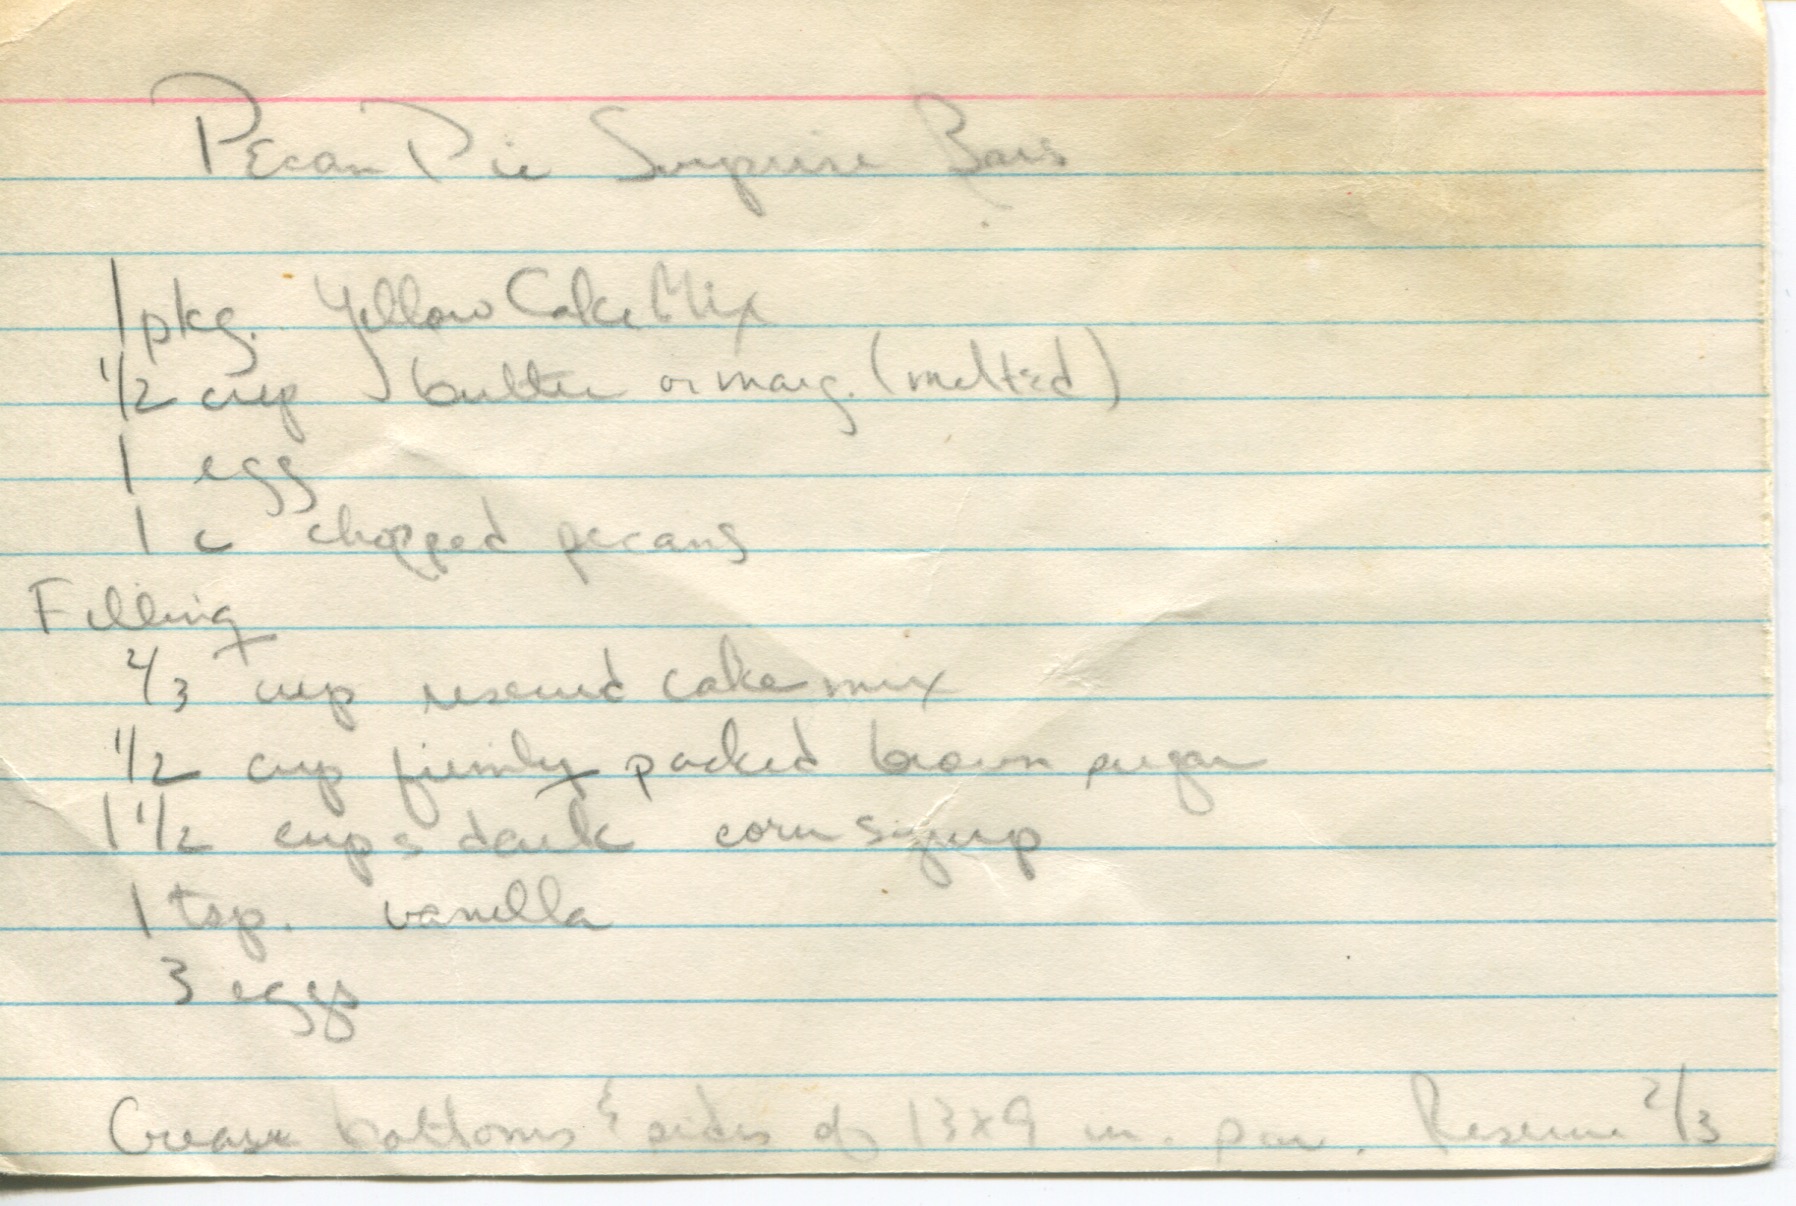 Pecan Pie Surprise Bars
1 pkg. Yellow Cake Mix
1/2 cup butter or marg. (melted)
1 egg
1 c chopped pecans
Filling
2/3 cup reserved cake mix
1/2 cup firmly packed brown sugar
1 1/2 cups dark corn syrup
1 tsp. vanilla
3 eggs
Grease bottoms & sides of 13x9 in. pan. Reserve 2/3